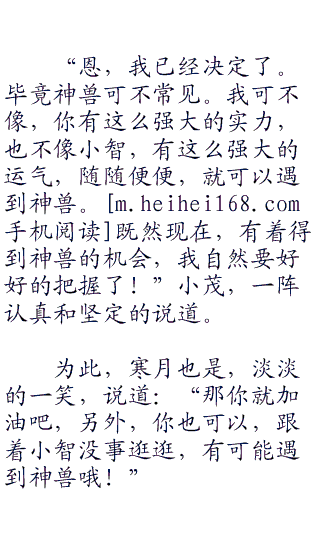 “恩，我已经决定了。
毕竟神兽可不常见。我可不
像，你有这么强大的实力，
也不像小智，有这么强大的
运气，随随便便，就可以遇
到神兽。[m.heihei168.com
手机阅读]既然现在，有着得
到神兽的机会，我自然要好
好的把握了！”小茂，一阵
认真和坚定的说道。
为此，寒月也是，淡淡
的一笑，说道：“那你就加
油吧，另外，你也可以，跟
着小智没事逛逛，有可能遇
到神兽哦！”